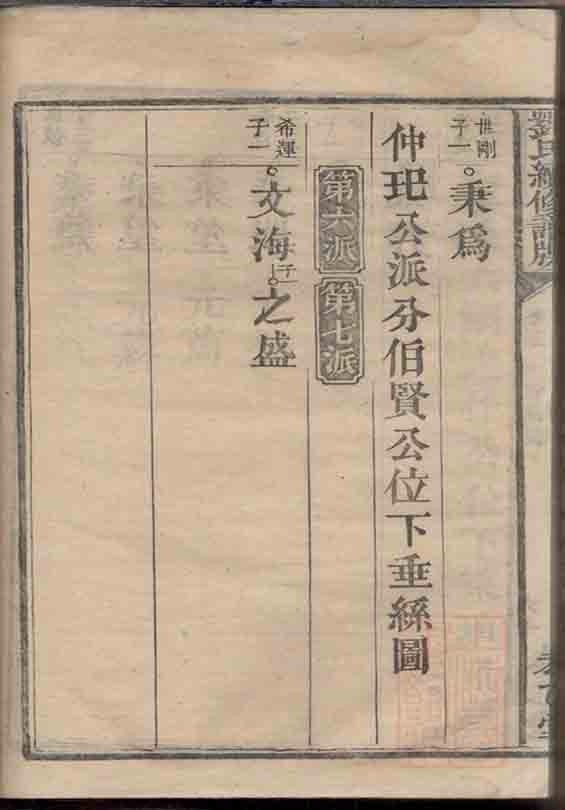 劉氏續修譜牒
世剛子一。秉為
仲玘公派分伯賢公位下垂絲圖
第六派 第七派
希運子一。文海子一。之盛